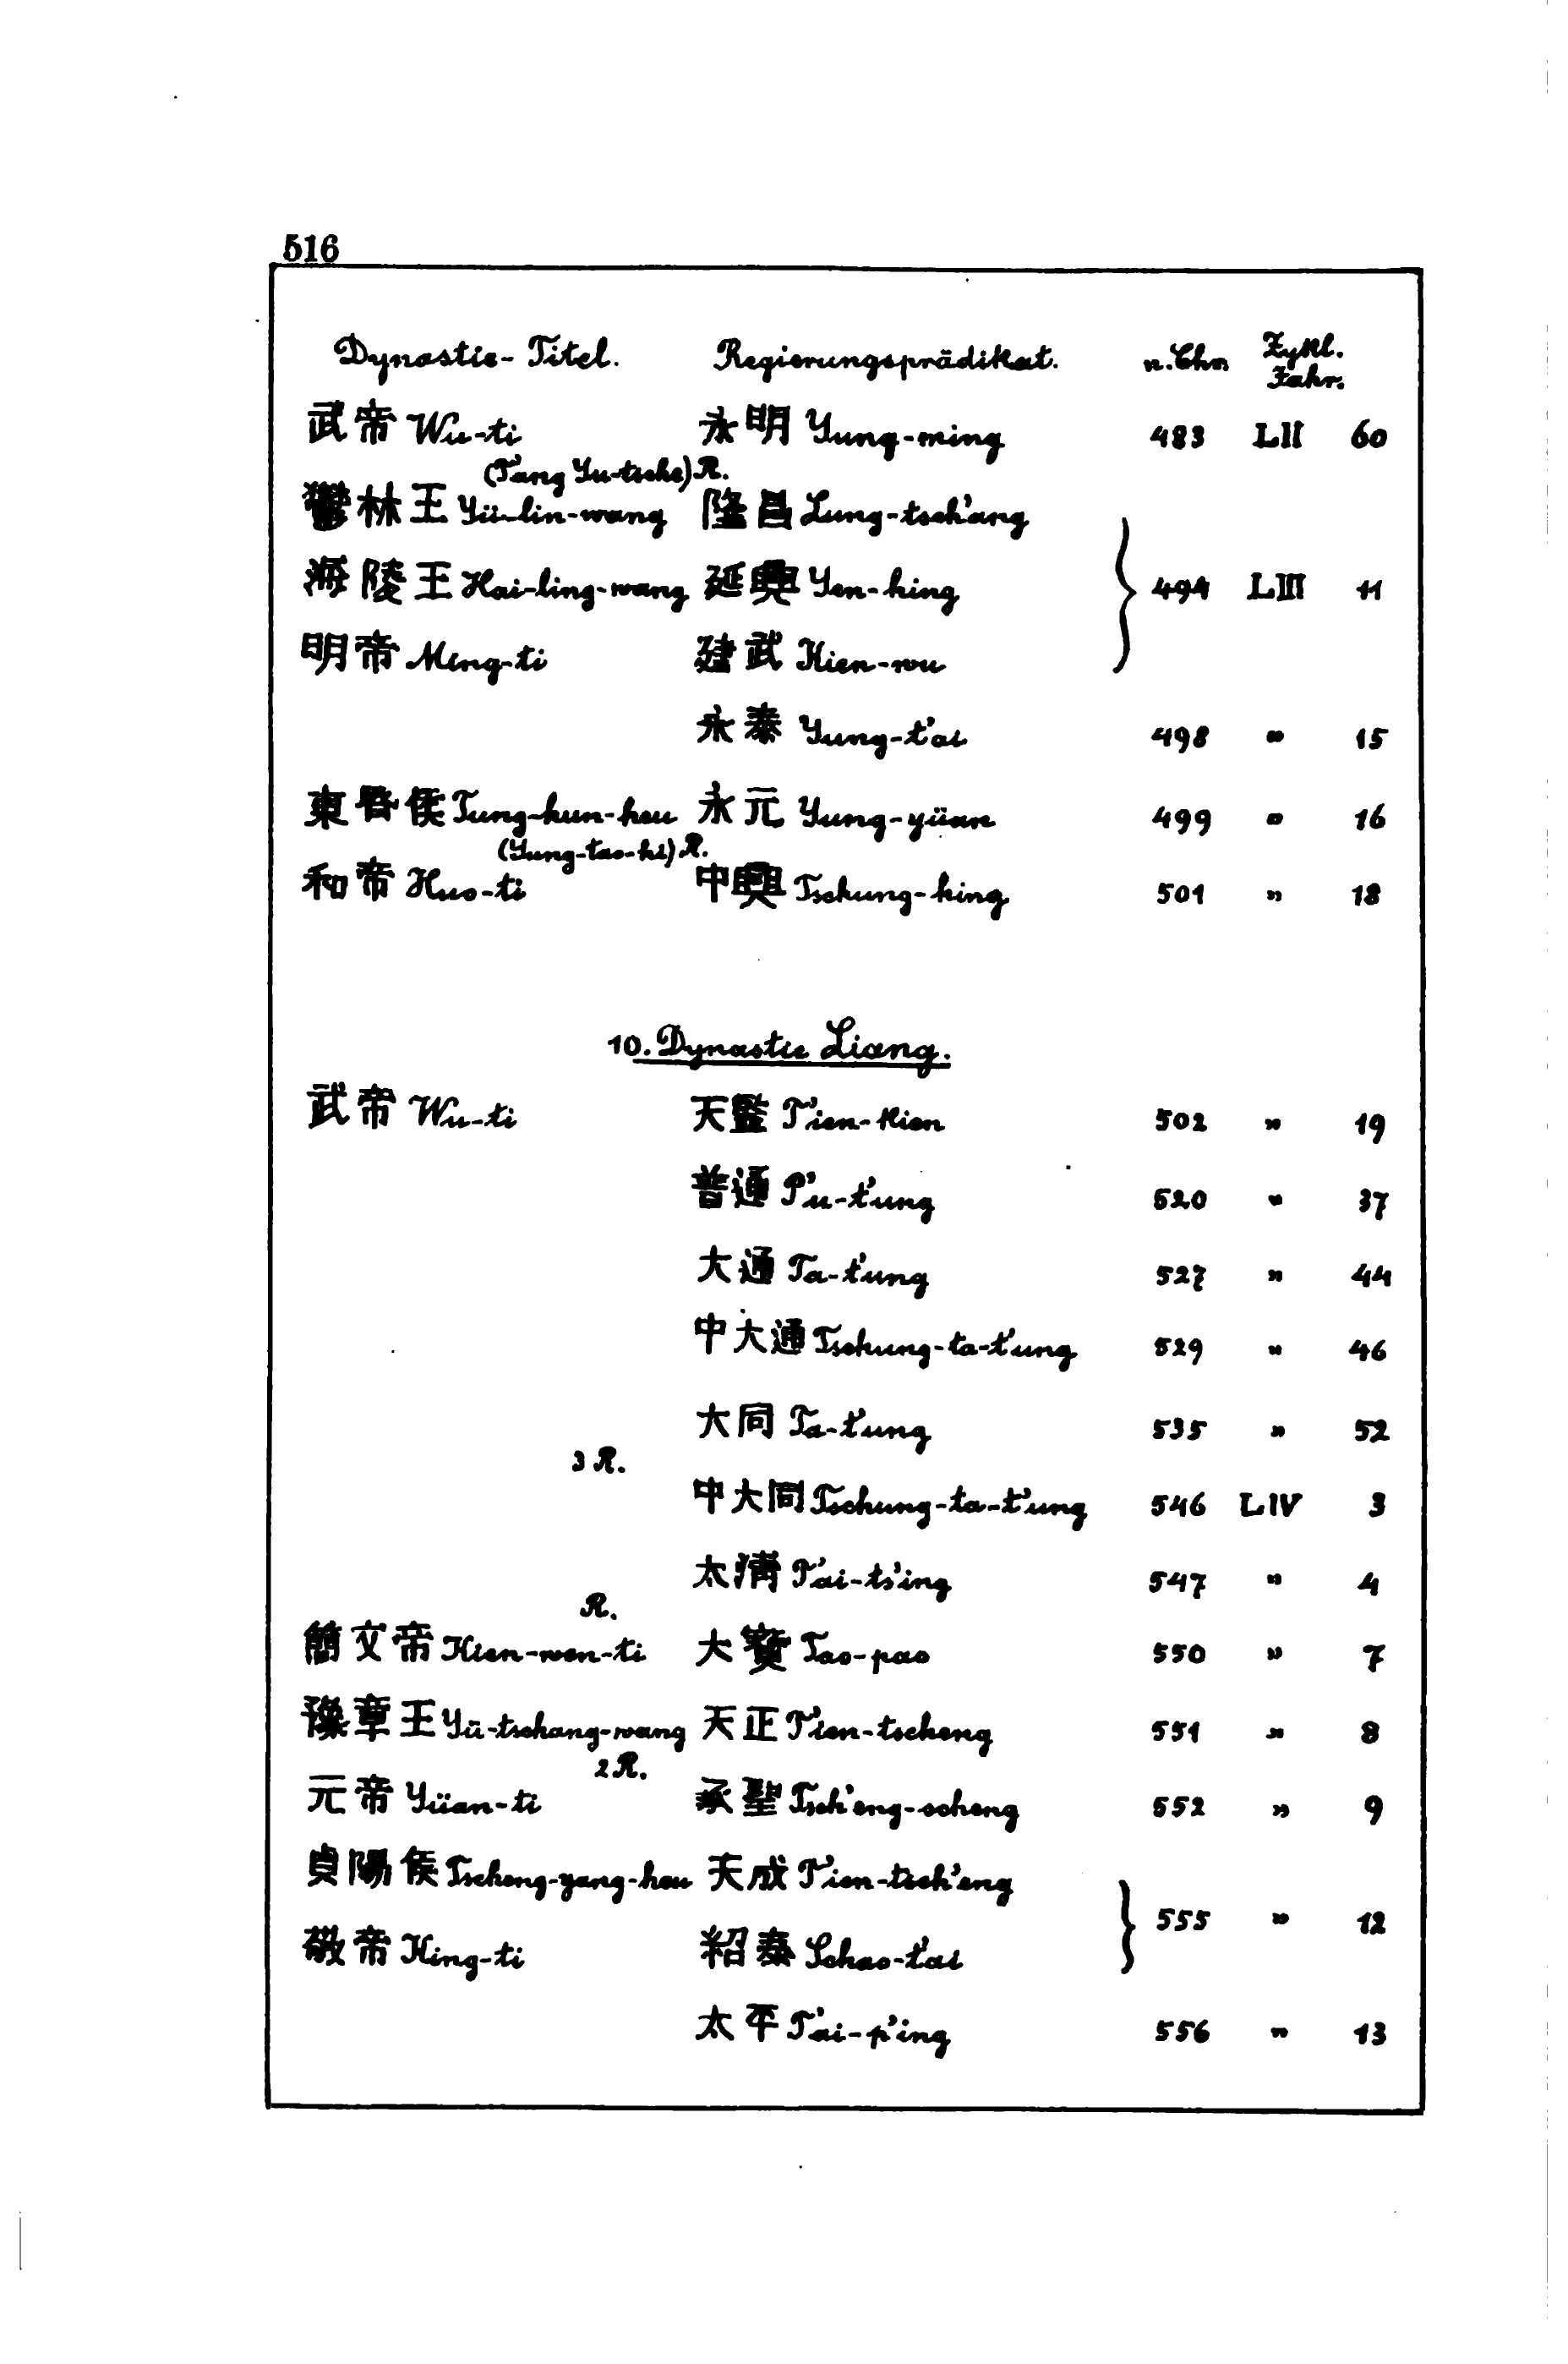 516
Dynastie-Titel. Regierungsprädikat. n. Chr. Zykl. Jahr.
武帝 Wu-ti 永明 Yung-ming 483 LII 60
(T'ang Yu-tsche) R.
鬱林王 Yü-lin-wang 隆昌 Lung-tsch'ang
海陵王 Hai-ling-wang 延興 Yen-hing 494 LIII 11
明帝 Ming-ti 建武 Kien-wu
永泰 Yung-t'ai 498 " 15
東昏侯 Tung-hun-hou 永元 Yung-yüan 499 " 16
(Yung-tao-hi) R.
和帝 Huo-ti 中興 Tschung-hing 501 " 18
10. Dynastie Liang.
武帝 Wu-ti 天監 T'ien-kien 502 " 19
普通 P'u-t'ung 520 " 37
大通 Ta-t'ung 527 " 44
中大通 Tschung-ta-t'ung 529 " 46
大同 Ta-t'ung 535 " 52
3 R.
中大同 Tschung-ta-t'ung 546 LIV 3
太清 T'ai-ts'ing 547 " 4
R.
簡文帝 Kien-wen-ti 大寶 Tao-pao 550 " 7
豫章王 Yü-tschang-wang 天正 T'ien-tscheng 551 " 8
2 R.
元帝 Yüan-ti 承聖 Tsch'eng-scheng 552 " 9
貞陽侯 Tscheng-yang-hou 天成 T'ien-tsch'eng
555 " 12
敬帝 King-ti 紹泰 Schao-t'ai
太平 T'ai-p'ing 556 " 13